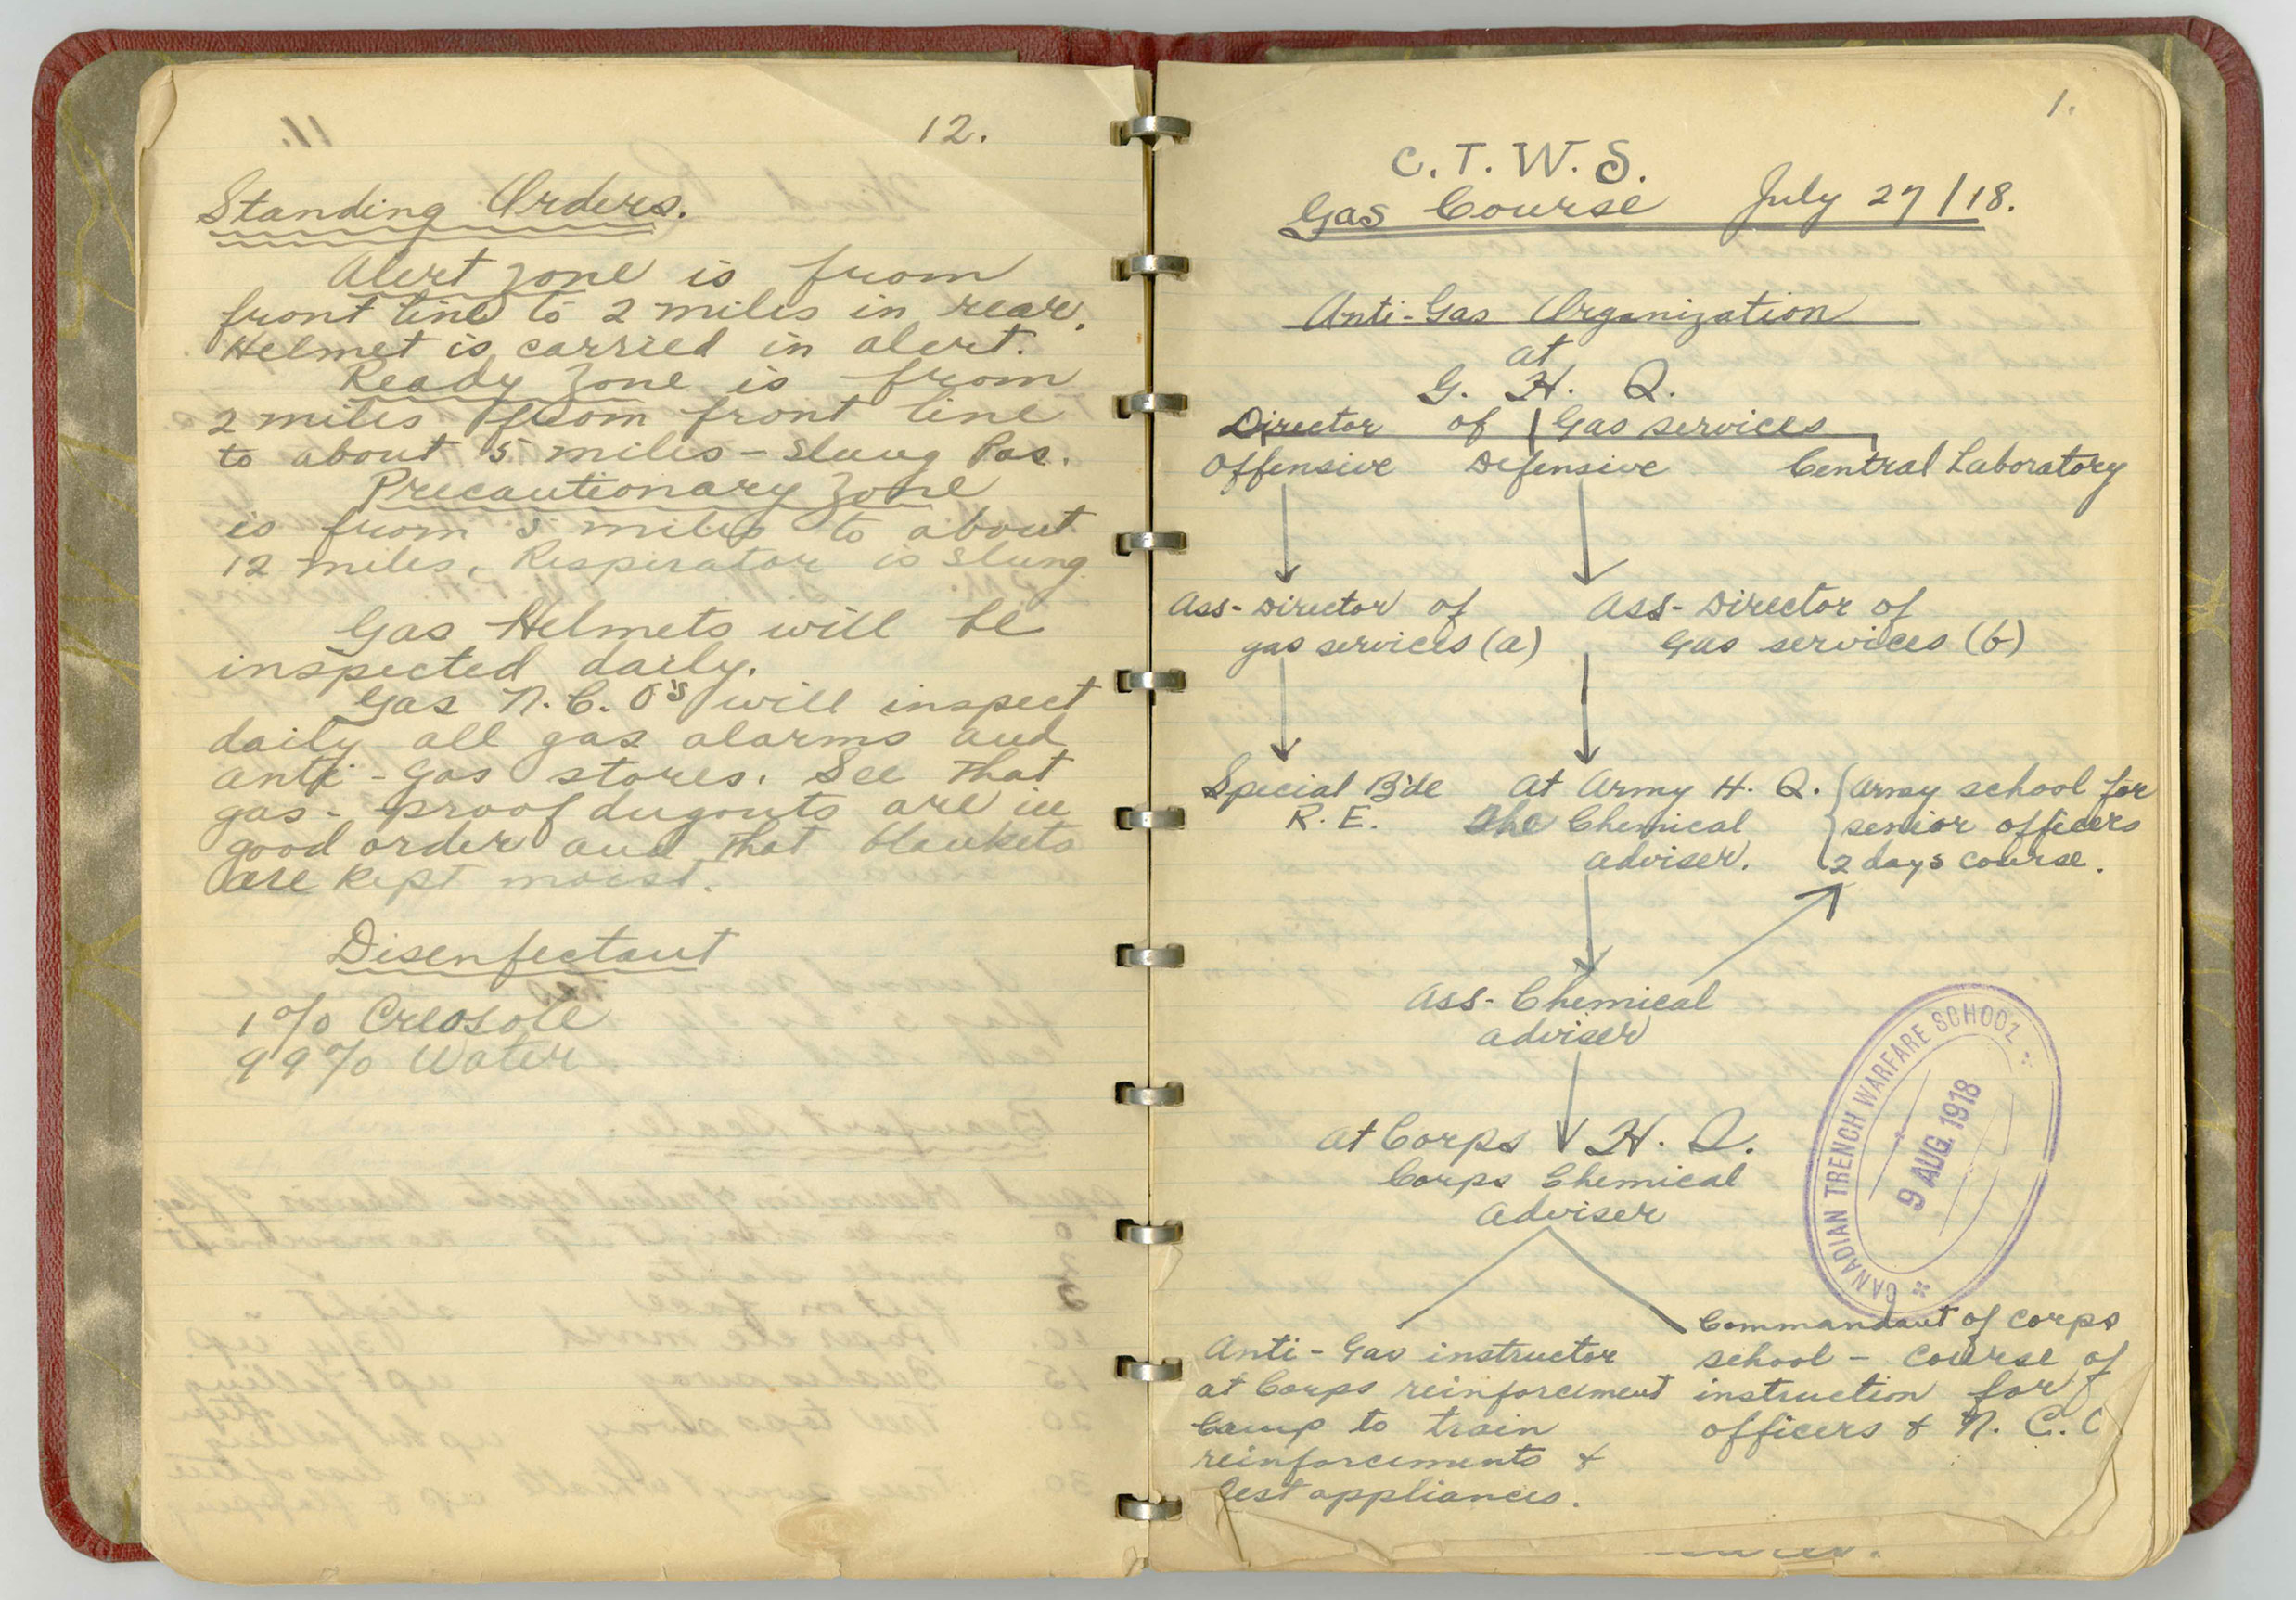 12.
Standing Orders.
Alert Zone is from
front line to 2 miles in rear.
Helmet is carried in alert.
Ready Zone is from
2 miles from front line
to about 5 miles - Slung Pos.
Precautionary Zone
is from 5 miles to about
12 miles, Respirator is Slung
Gas Helmets will be
inspected daily.
Gas N.C.O's will inspect
daily all gas alarms and
anti-Gas stores. See that
gas-proof dugouts are in
good order and that blankets
are kept moist.
Disenfectant
1% Creosote
99% Water
1.
C.T.W.S.
Gas Course July 27/18.
Anti-Gas Organization
at
G. H. Q.
Director of Gas services
Offensive Defensive Central Laboratory
Ass-Director of Ass-Director of
gas services (a) Gas services (b)
Special B'de At Army H. Q. Army school for
R. E. The Chemical senior officers
adviser. 2 days course.
Ass-Chemical
adviser
At Corps H. Q.
Corps Chemical
Adviser
Commandant of Corps
Anti-Gas instructor school - course of
at Corps reinforcement instruction for
Camp to train officers & N. C.
reinforcements &
Test appliances.
CANADIAN TRENCH WARFARE SCHOOL
9 AUG. 1918